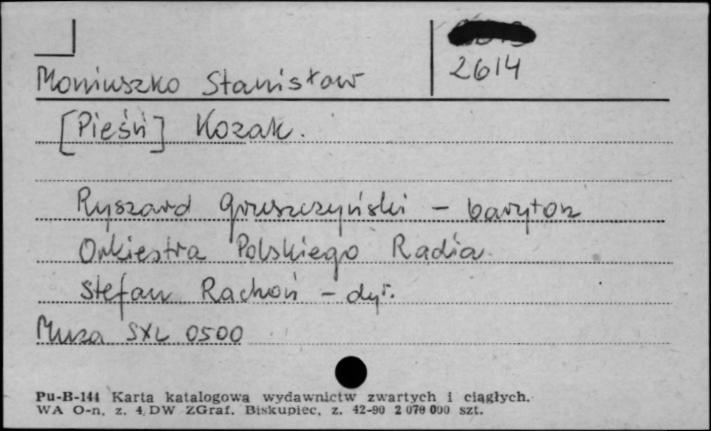 Moniuszko Stanisław
2614
[Pieśń] Kozak.
Ryszard Gruszczyński – baryton
Orkiestra Polskiego Radia
Stefan Rachoń – dyr.
Muza SXL 0500
Pu-B-144 Karta katalogowa wydawnictw zwartych i ciągłych.
WA O-n, z. 4, DW ZGraf. Biskupiec, z. 42-90 2 070 000 szt.